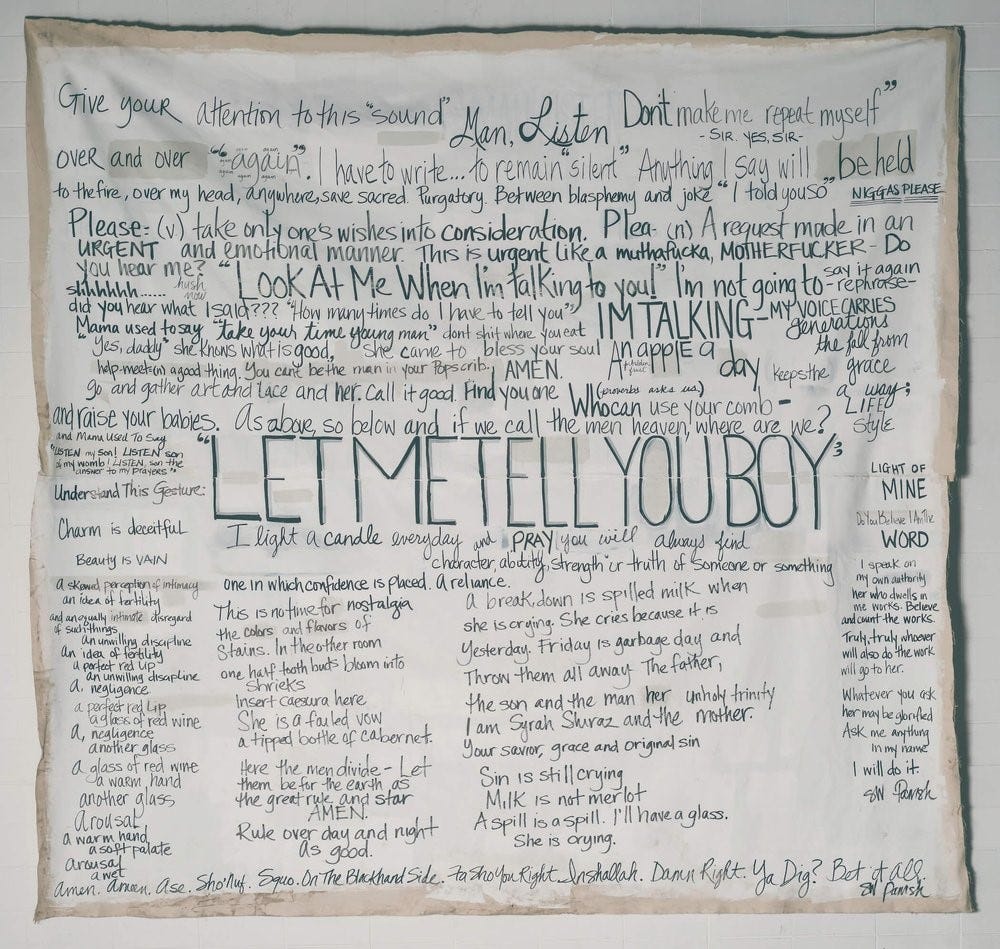 Give your attention to this "sound" Man, Listen Don't make me repeat myself"
- SIR. YES, SIR-
over and over "again". I have to write... to remain "silent" Anything I say will be held
again again again again again again
to the fire, over my head, anywhere, save sacred. Purgatory. Between blasphemy and joke "I told you so" NIGGAS PLEASE
Please- (v) take only one's wishes into consideration. Plea- (n) A request made in an
URGENT and emotional manner. This is urgent like a muthafucka, MOTHERFUCKER - Do
you hear me? "LOOK At Me When I'm talking to you!" I'm not going to - say it again
shhhhhh...... hush now -rephrase-
did you hear what I said??? "How many times do I have to tell you"? I'M TALKING - MY VOICE CARRIES
Mama used to say "take your time young man" dont shit where you eat generations
"Yes, daddy" she knows what is good, she came to bless your soul An apple a day the fall from
help-meet-(n) a good thing. You can't be the man in your Pop's crib. AMEN. keeps the grace
go and gather art and lace and her. Call it good. Find you one Who can use your comb - a way;
(proverbs asks us)
LIFE
style
and raise your babies. As above, so below and if we call the men heaven, where are we?
and Mama Used To Say
"LISTEN my Son! LISTEN son
of my womb! LISTEN, son the
answer to my prayers"
"LET ME TELL YOU BOY"
Understand This Gesture:
LIGHT OF
MINE
Charm is deceitful
Beauty is VAIN
I light a candle everyday and PRAY you will always find
character, ability, strength or truth of someone or something
one in which confidence is placed. A reliance.
a skewed perception of intimacy
an idea of fertility
and an equally intimate disregard
of such things
an unwilling discipline
an idea of fertility
a perfect red lip
an unwilling discipline
a, negligence
a perfect red lip
a glass of red wine
a, negligence
another glass
a glass of red wine
a warm hand
another glass
Arousal
a warm hand
a soft palate
Arousal
a wet
This is no time for nostalgia
the colors and flavors of
Stains. In the other room
one half tooth buds bloom into
shrieks
insert caesura here
She is a failed vow
a tipped bottle of cabernet.
Here the men divide - Let
them be for the earth as
the great rule and star
AMEN.
Rule over day and night
As good.
A break, down is spilled milk when
she is crying. She cries because it is
Yesterday. Friday is garbage day and
Throw them all away. The father,
the son and the man her unholy trinity
I am Syrah Shiraz and the mother.
Your savior, grace and original sin
Sin is still crying
Milk is not merlot
A spill is a spill. I'll have a glass.
She is crying.
Do You Believe I Am The
WORD
I speak on
my own authority
her who dwells in
me works. Believe
and count the works.
Truly, truly whoever
will also do the work
will go to her.
Whatever you ask
her may be glorified
Ask me anything
in my name
I will do it.
SW Parish
amen. Ameen. Ase. Sho'nuf. Squo. On The Blackhand Side. Fa Sho You Right. Inshallah. Damn Right. Ya Dig? Bet it all.
SW Parish